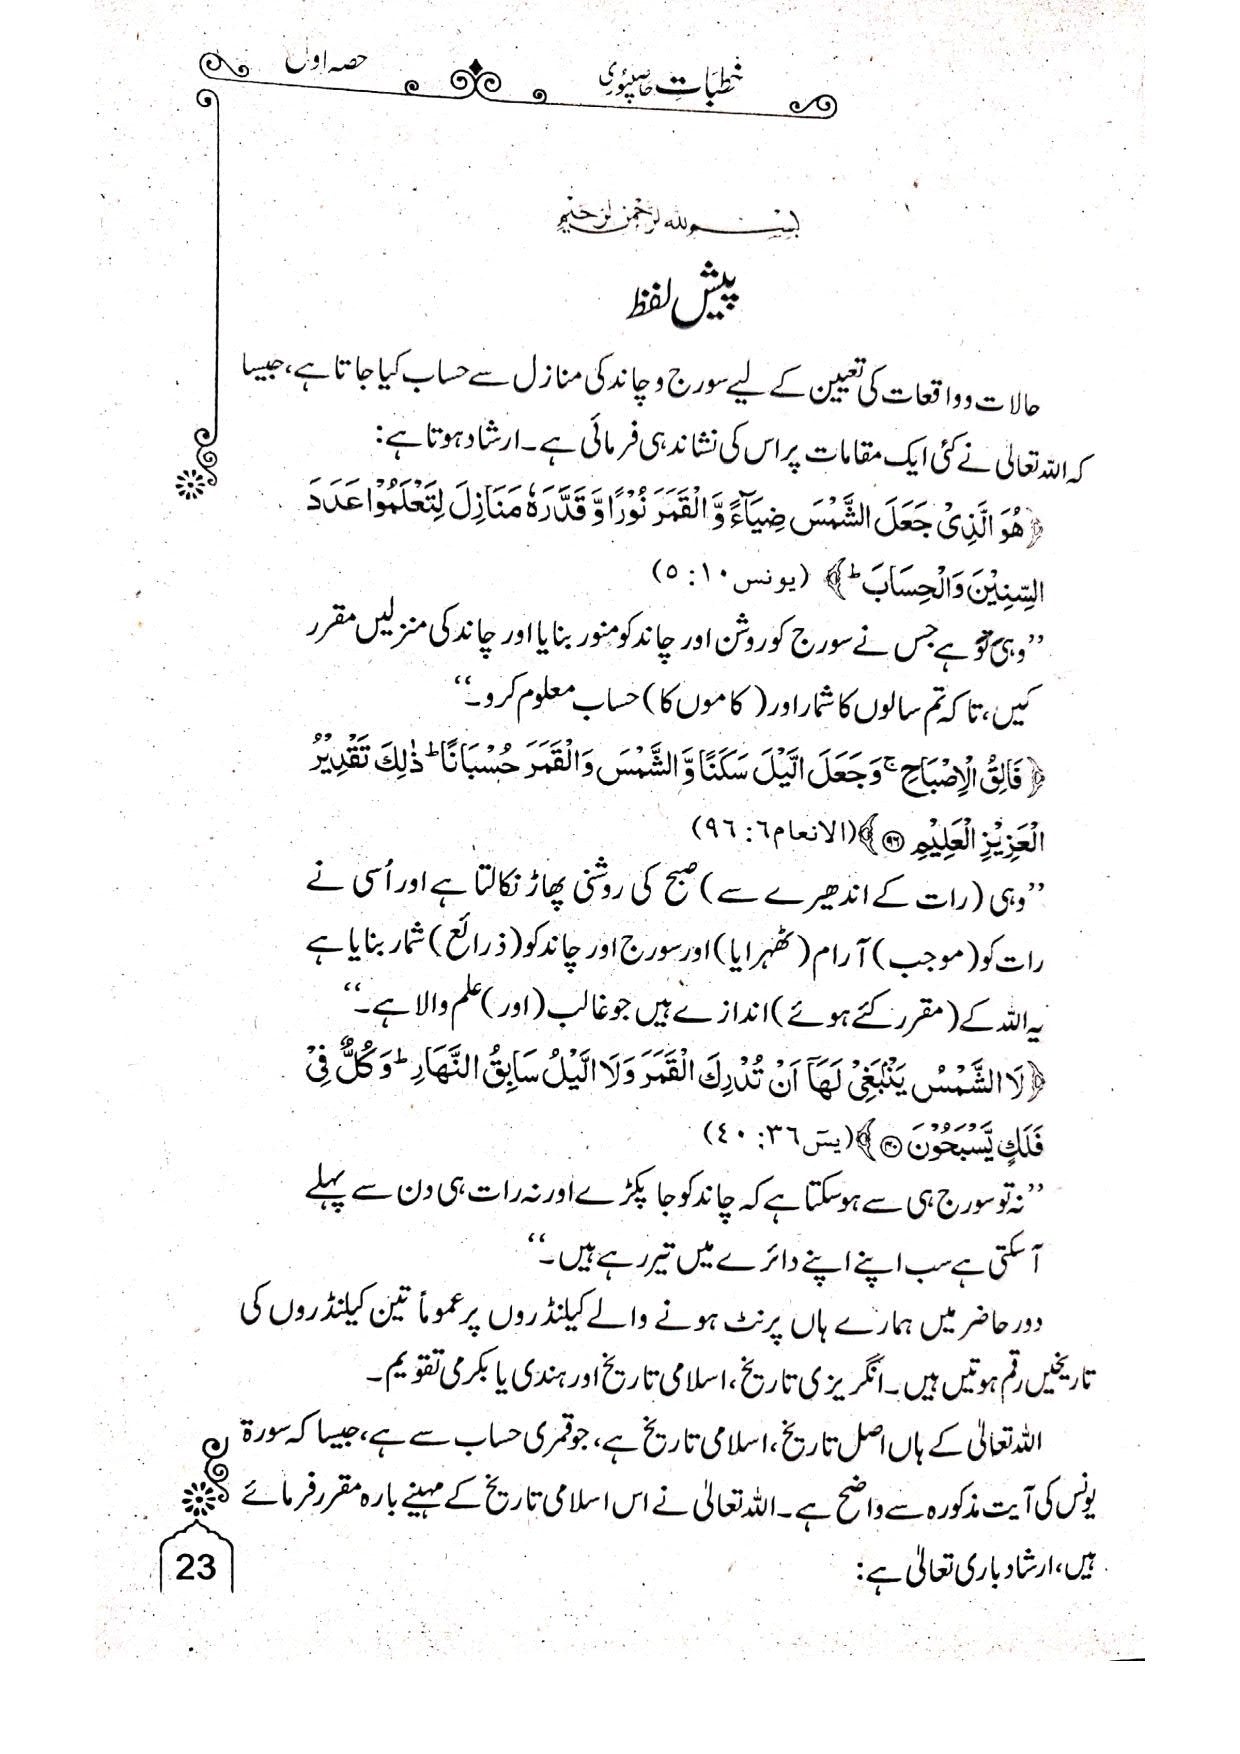 خطباتِ حاصلپوری
حصہ اول
بسم اللہ الرحمن الرحیم
پیش لفظ
حالات و واقعات کی تعیین کے لیے سورج و چاند کی منازل سے حساب کیا جاتا ہے، جیسا
کہ اللہ تعالی نے کئی ایک مقامات پر اس کی نشاندہی فرمائی ہے۔ ارشاد ہوتا ہے:
﴿هُوَ الَّذِیْ جَعَلَ الشَّمْسَ ضِیَآءً وَّالْقَمَرَ نُوْرًا وَّ قَدَّرَهٗ مَنَازِلَ لِتَعْلَمُوْا عَدَدَ
السِّنِیْنَ وَالْحِسَابَ ؕ﴾ (یونس ١٠: ٥)
’’وہی تو ہے جس نے سورج کو روشن اور چاند کو منور بنایا اور چاند کی منزلیں مقرر
کیں، تا کہ تم سالوں کا شمار اور (کاموں کا) حساب معلوم کرو۔‘‘
﴿فَالِقُ الْاِصْبَاحِ ۚ وَ جَعَلَ الَّیْلَ سَكَنًا وَّ الشَّمْسَ وَالْقَمَرَ حُسْبَانًا ؕ ذٰلِكَ تَقْدِیْرُ
الْعَزِیْزِ الْعَلِیْمِ ۝۹۶﴾ (الانعام ٦: ٩٦)
’’وہی (رات کے اندھیرے سے) صبح کی روشنی پھاڑ نکالتا ہے اور اُسی نے
رات کو (موجب) آرام (ٹھہرایا) اور سورج اور چاند کو (ذرائع) شمار بنایا ہے
یہ اللہ کے (مقرر کئے ہوئے) اندازے ہیں جو غالب (اور) علم والا ہے۔‘‘
﴿لَا الشَّمْسُ یَنْۢبَغِیْ لَهَاۤ اَنْ تُدْرِكَ الْقَمَرَ وَلَا الَّیْلُ سَابِقُ النَّهَارِ ؕ وَ كُلٌّ فِیْ
فَلَكٍ یَّسْبَحُوْنَ ۝۴۰﴾ (یسٓ ٣٦: ٤٠)
’’نہ تو سورج ہی سے ہو سکتا ہے کہ چاند کو جا پکڑے اور نہ رات ہی دن سے پہلے
آ سکتی ہے سب اپنے اپنے دائرے میں تیر رہے ہیں۔‘‘
دور حاضر میں ہمارے ہاں پرنٹ ہونے والے کیلنڈروں پر عموماً تین کیلنڈروں کی
تاریخیں رقم ہوتیں ہیں۔ انگریزی تاریخ، اسلامی تاریخ اور ہندی یا بکرمی تقویم۔
اللہ تعالیٰ کے ہاں اصل تاریخ، اسلامی تاریخ ہے، جو قمری حساب سے ہے، جیسا کہ سورۃ
یونس کی آیت مذکورہ سے واضح ہے۔ اللہ تعالیٰ نے اس اسلامی تاریخ کے مہینے بارہ مقرر فرمائے
ہیں، ارشاد باری تعالیٰ ہے:
23